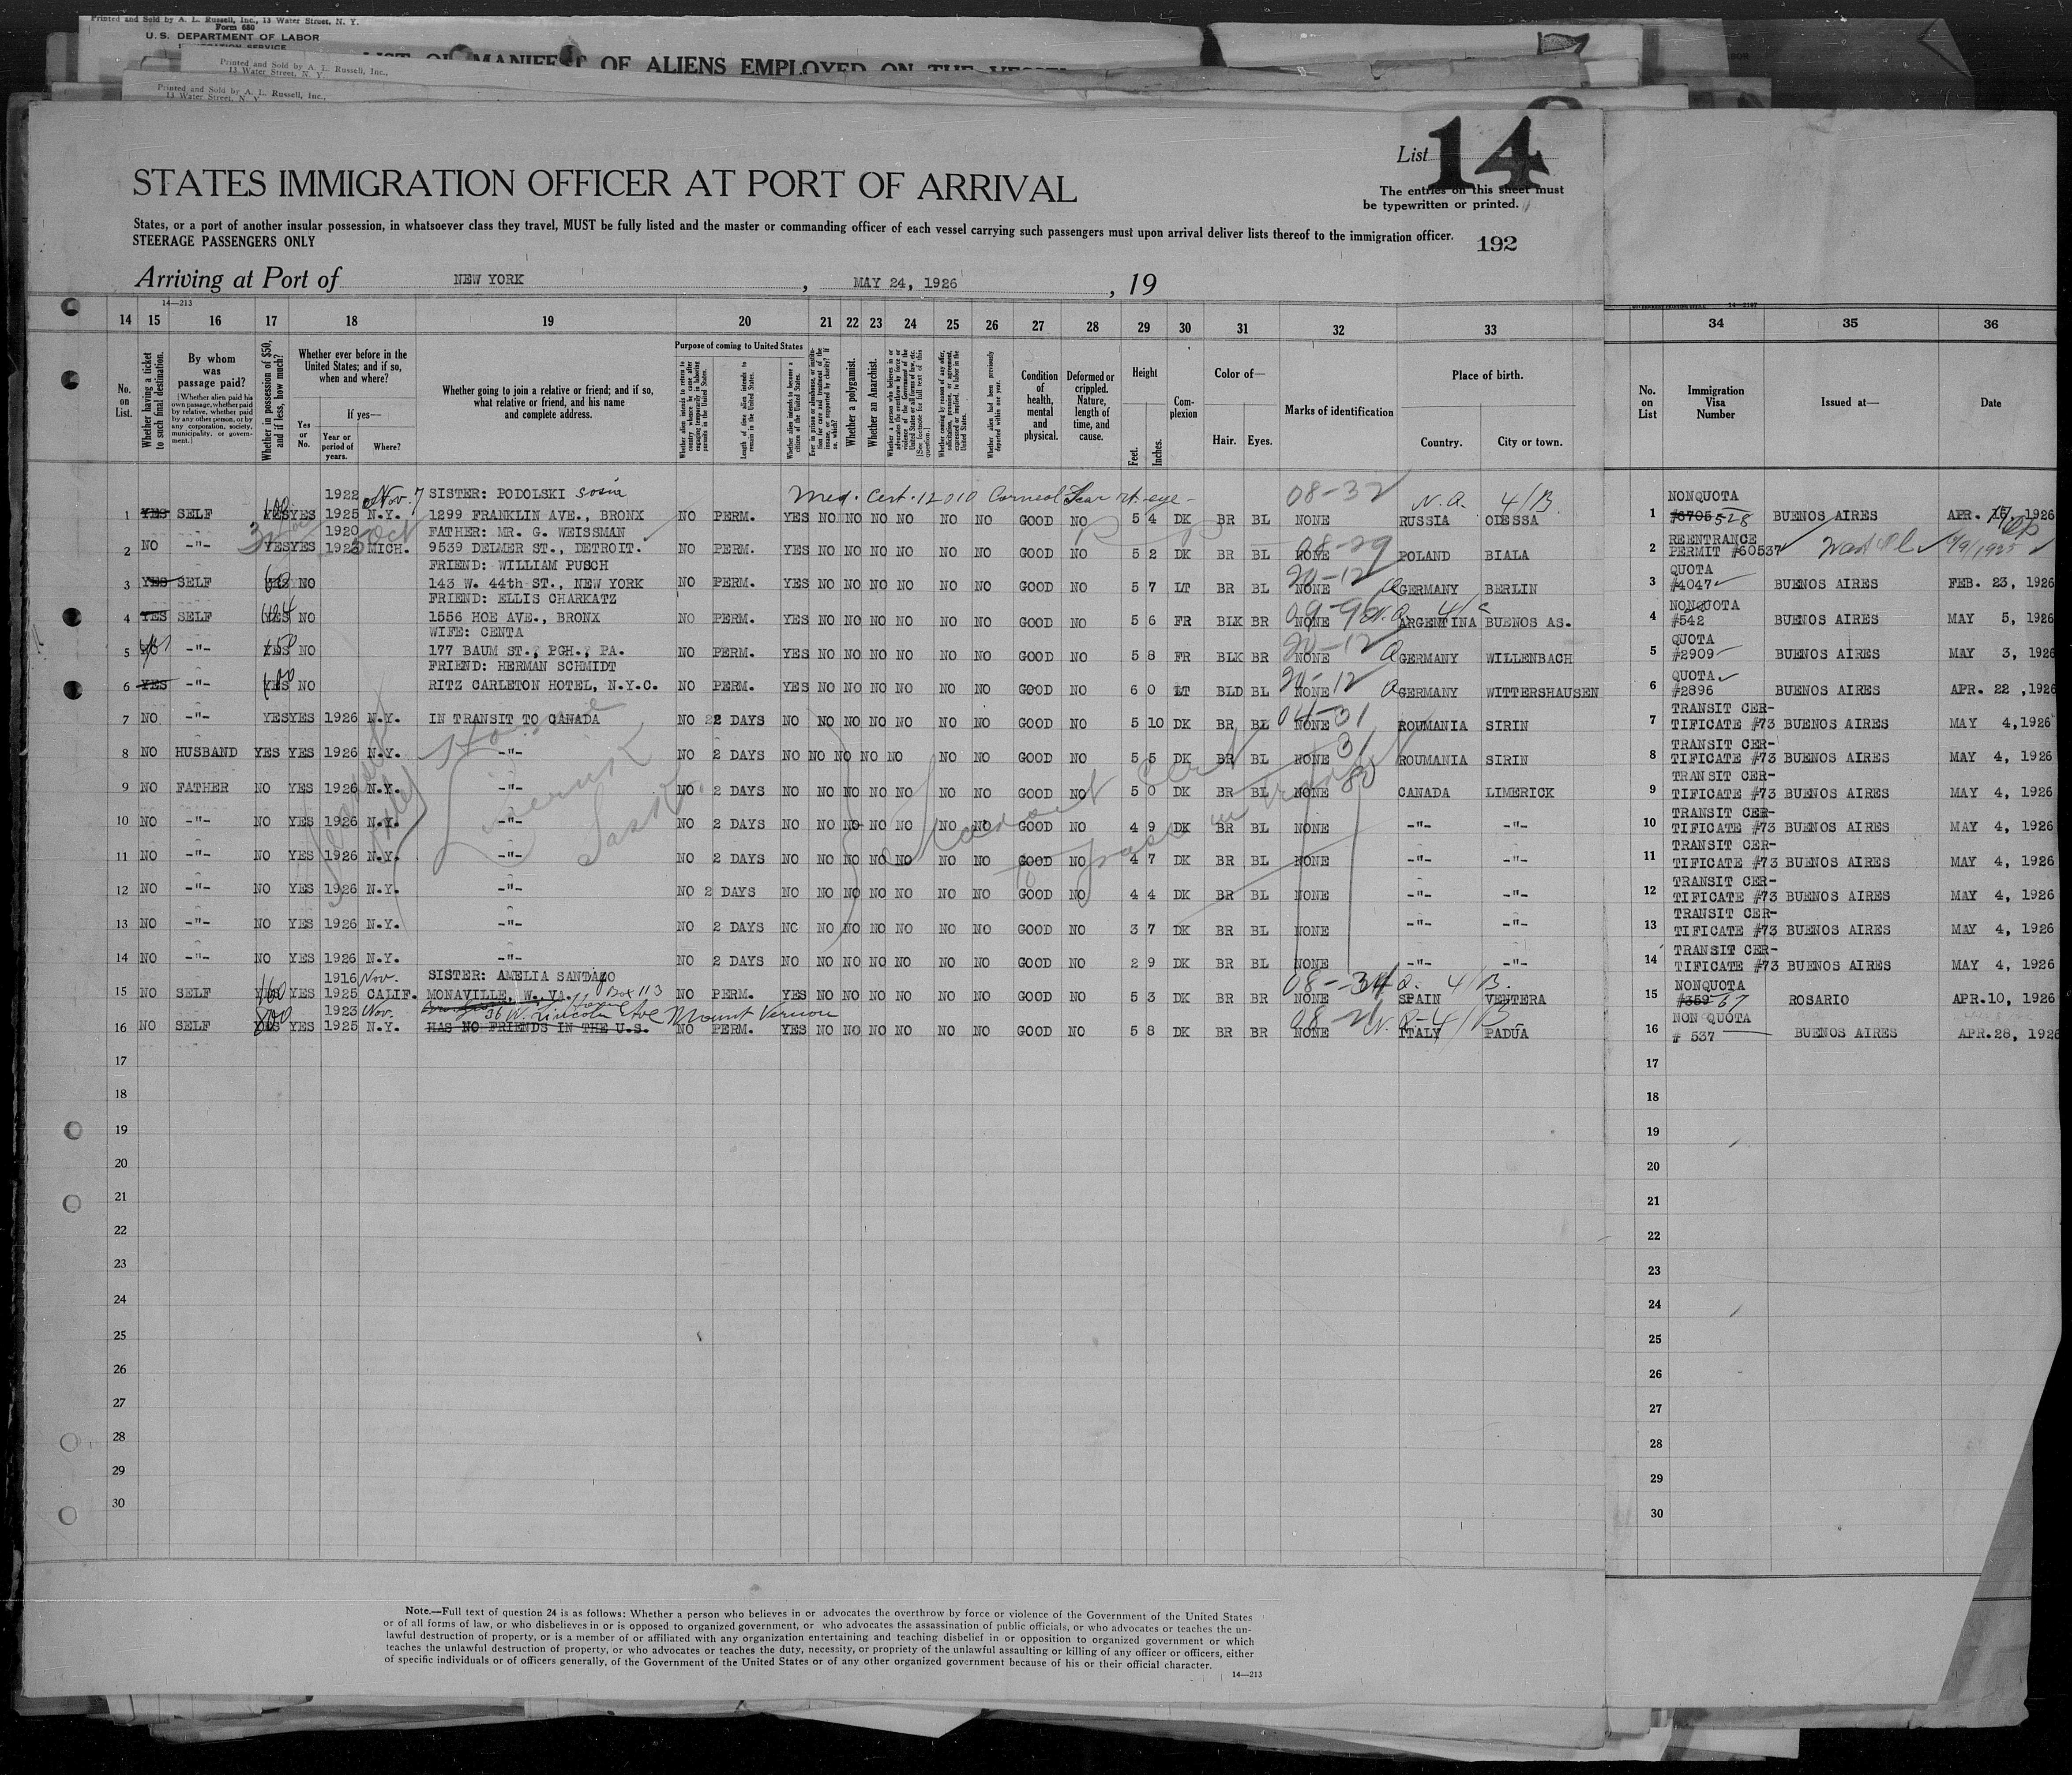 Printed and Sold by A. L. Russell, Inc., 13 Water Street, N. Y.
Form 680
U. S. DEPARTMENT OF LABOR
Printed and Sold by A. L. Russell, Inc.,
13 Water Street, N. Y.
MANIFEST OF ALIENS EMPLOYED ON THE VESSEL
Printed and Sold by A. L. Russell, Inc.,
13 Water Street, N. Y.
List 14
STATES IMMIGRATION OFFICER AT PORT OF ARRIVAL
The entries on this sheet must
be typewritten or printed.
States, or a port of another insular possession, in whatsoever class they travel, MUST be fully listed and the master or commanding officer of each vessel carrying such passengers must upon arrival deliver lists thereof to the immigration officer.
STEERAGE PASSENGERS ONLY
192
Arriving at Port of NEW YORK, MAY 24, 1926, 19
14—213
14 15 16 17 18 19 20 21 22 23 24 25 26 27 28 29 30 31 32 33 34 35 36
No. on List.
Whether having a ticket to such final destination.
By whom was passage paid?
[Whether alien paid his own passage, whether paid by relative, whether paid by any other person, or by any corporation, society, municipality, or government.]
Whether in possession of $50, and if less, how much?
Whether ever before in the United States; and if so, when and where?
Yes or No.
If yes—
Year or period of years.
Where?
Whether going to join a relative or friend; and if so, what relative or friend, and his name and complete address.
Purpose of coming to United States
Length of time alien intends to remain in the United States.
Whether alien intends to become a citizen of the United States.
Whether a polygamist.
Whether an Anarchist.
Condition of health, mental and physical.
Deformed or crippled. Nature, length of time, and cause.
Height
Feet.
Inches.
Complexion
Color of—
Hair. Eyes.
Marks of identification
Place of birth.
Country. City or town.
No. on List
Immigration Visa Number
Issued at—
Date
1922 Nov. 7 SISTER: PODOLSKI Sosia Med. Cert. 12010 Corneal Scar rt. eye - 08-32 N.A. 4/B NONQUOTA
1 YES SELF 100 YES YES 1925 N.Y. 1299 FRANKLIN AVE., BRONX NO PERM. YES NO NO NO NO NO NO GOOD NO 5 4 DK BR BL NONE RUSSIA ODESSA 1 #6705 528 BUENOS AIRES APR. 15, 1926
1920 Oct FATHER: MR. G. WEISSMAN 08-29 REENTRANCE
2 NO -"- YES YES 1923 MICH. 9539 DELMER ST., DETROIT. NO PERM. YES NO NO NO NO NO NO GOOD NO 5 2 DK BR BL NONE POLAND BIALA 2 PERMIT #60537
FRIEND: WILLIAM PUSCH 20-12 QUOTA
3 YES SELF YES NO 143 W. 44th ST., NEW YORK NO PERM. YES NO NO NO NO NO NO GOOD NO 5 7 LT BR BL NONE GERMANY BERLIN 3 #4047 BUENOS AIRES FEB. 23, 1926
FRIEND: ELLIS CHARKATZ NONQUOTA
4 YES SELF YES NO 1556 HOE AVE., BRONX NO PERM. YES NO NO NO NO NO NO GOOD NO 5 6 FR BLK BR NONE ARGENTINA BUENOS AS. 4 #542 BUENOS AIRES MAY 5, 1926
WIFE: CENTA 20-12 QUOTA
5 NO -"- YES NO 177 BAUM ST., PGH., PA. NO PERM. YES NO NO NO NO NO NO GOOD NO 5 8 FR BLK BR NONE GERMANY WILLENBACH 5 #2909 BUENOS AIRES MAY 3, 1926
FRIEND: HERMAN SCHMIDT 20-12 QUOTA
6 YES -"- YES NO RITZ CARLETON HOTEL, N.Y.C. NO PERM. YES NO NO NO NO NO NO GOOD NO 6 0 LT BLD BL NONE GERMANY WITTERSHAUSEN 6 #2896 BUENOS AIRES APR. 22, 1926
04-31 TRANSIT CER-
7 NO -"- YES YES 1926 N.Y. IN TRANSIT TO CANADA NO 2 DAYS NO NO NO NO NO NO NO GOOD NO 5 10 DK BR BL NONE ROUMANIA SIRIN 7 TIFICATE #73 BUENOS AIRES MAY 4, 1926
31 TRANSIT CER-
8 NO HUSBAND YES YES 1926 N.Y. -"- NO 2 DAYS NO NO NO NO NO NO NO GOOD NO 5 5 DK BR BL NONE ROUMANIA SIRIN 8 TIFICATE #73 BUENOS AIRES MAY 4, 1926
TRANSIT CER-
9 NO FATHER NO YES 1926 N.Y. -"- NO 2 DAYS NO NO NO NO NO NO NO GOOD NO 5 0 DK BR BL NONE CANADA LIMERICK 9 TIFICATE #73 BUENOS AIRES MAY 4, 1926
TRANSIT CER-
10 NO -"- NO YES 1926 N.Y. -"- NO 2 DAYS NO NO NO NO NO NO NO GOOD NO 4 9 DK BR BL NONE -"- -"- 10 TIFICATE #73 BUENOS AIRES MAY 4, 1926
TRANSIT CER-
11 NO -"- NO YES 1926 N.Y. -"- NO 2 DAYS NO NO NO NO NO NO NO GOOD NO 4 7 DK BR BL NONE -"- -"- 11 TIFICATE #73 BUENOS AIRES MAY 4, 1926
TRANSIT CER-
12 NO -"- NO YES 1926 N.Y. -"- NO 2 DAYS NO NO NO NO NO NO NO GOOD NO 4 4 DK BR BL NONE -"- -"- 12 TIFICATE #73 BUENOS AIRES MAY 4, 1926
TRANSIT CER-
13 NO -"- NO YES 1926 N.Y. -"- NO 2 DAYS NO NO NO NO NO NO NO GOOD NO 3 7 DK BR BL NONE -"- -"- 13 TIFICATE #73 BUENOS AIRES MAY 4, 1926
TRANSIT CER-
14 NO -"- NO YES 1926 N.Y. -"- NO 2 DAYS NO NO NO NO NO NO NO GOOD NO 2 9 DK BR BL NONE -"- -"- 14 TIFICATE #73 BUENOS AIRES MAY 4, 1926
1916 Nov. SISTER: AMELIA SANDAGO 4/B. NONQUOTA
15 NO SELF YES YES 1925 CALIF. MONAVILLE, W. VA. Box 113 NO PERM. YES NO NO NO NO NO NO GOOD NO 5 3 DK BR BR NONE SPAIN VENTERA 15 #359 67 ROSARIO APR. 10, 1926
1923 Nov. 36 W. Lincoln Ave Mount Vernon 4/B NON QUOTA
16 NO SELF 800 YES YES 1925 N.Y. HAS NO FRIENDS IN THE U.S. NO PERM. YES NO NO NO NO NO NO GOOD NO 5 8 DK BR BR NONE ITALY PADUA 16 # 537 BUENOS AIRES APR. 28, 1926
17 17
18 18
19 19
20 20
21 21
22 22
23 23
24 24
25 25
26 26
27 27
28 28
29 29
30 30
Note.—Full text of question 24 is as follows: Whether a person who believes in or advocates the overthrow by force or violence of the Government of the United States
or of all forms of law, or who disbelieves in or is opposed to organized government, or who advocates the assassination of public officials, or who advocates or teaches the un-
lawful destruction of property, or is a member of or affiliated with any organization entertaining and teaching disbelief in or opposition to organized government or which
teaches the unlawful destruction of property, or who advocates or teaches the duty, necessity, or propriety of the unlawful assaulting or killing of any officer or officers, either
of specific individuals or of officers generally, of the Government of the United States or of any other organized government because of his or their official character.
14—213